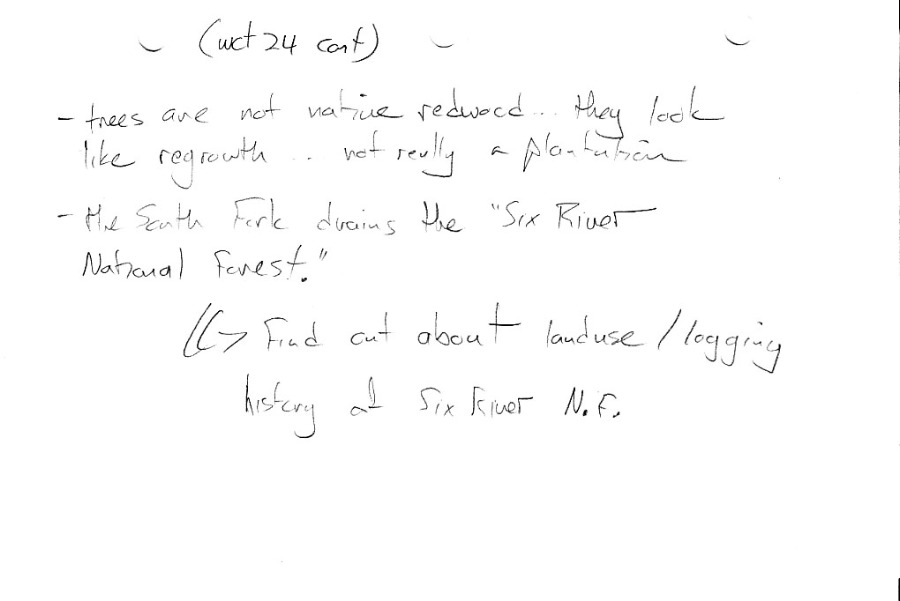 (wct 24 cont)
- trees are not native redwood... they look
like regrowth... not really a plantation
- the South Fork drains the "Six River
National Forest."
Find out about landuse/logging
history at Six River N.F.